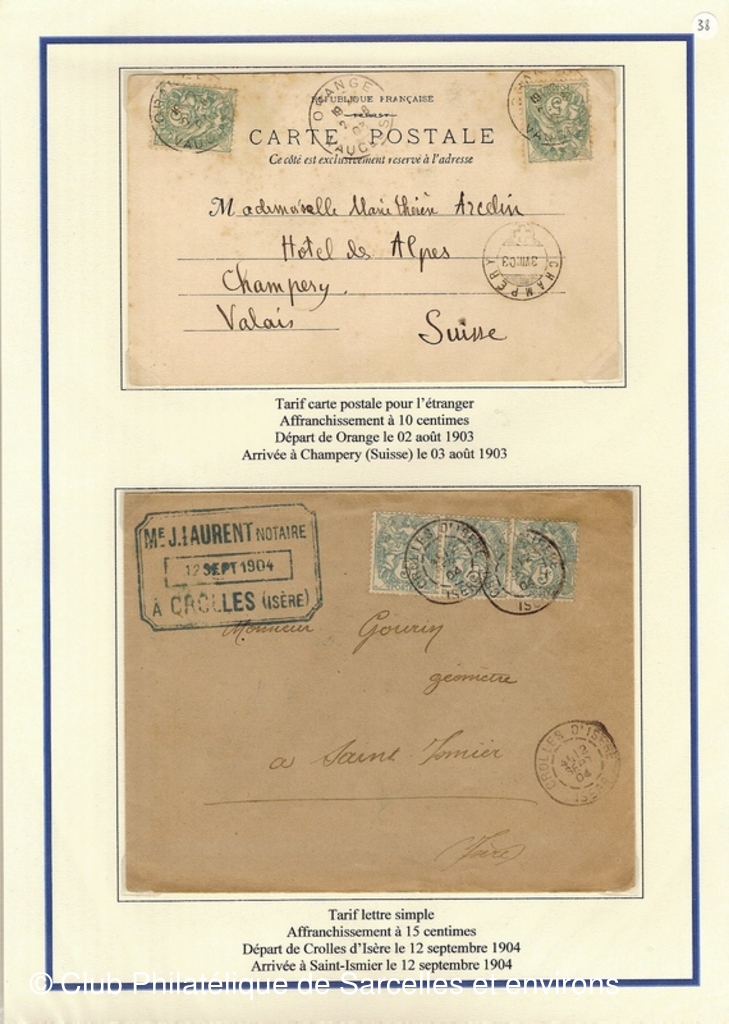 38
ORANGE
VAUCLUSE
RÉPUBLIQUE FRANÇAISE
CARTE POSTALE
Ce côté est exclusivement réservé à l'adresse
Mademoiselle Marie Arcdin
Hotel des Alpes
Champery
Valais
Suisse
CHAMPERY
3 VIII 03
Tarif carte postale pour l'étranger
Affranchissement à 10 centimes
Départ de Orange le 02 août 1903
Arrivée à Champery (Suisse) le 03 août 1903
ME J. LAURENT NOTAIRE
12 SEPT 1904
À CROLLES (ISÈRE)
CROLLES D'ISÈRE
Monsieur Gourin
géomètre
a Saint-Ismier
CROLLES D'ISÈRE
12
SEPT
04
ISÈRE
Isère
Tarif lettre simple
Affranchissement à 15 centimes
Départ de Crolles d'Isère le 12 septembre 1904
Arrivée à Saint-Ismier le 12 septembre 1904
© Club Philatélique de Sarcelles et environs